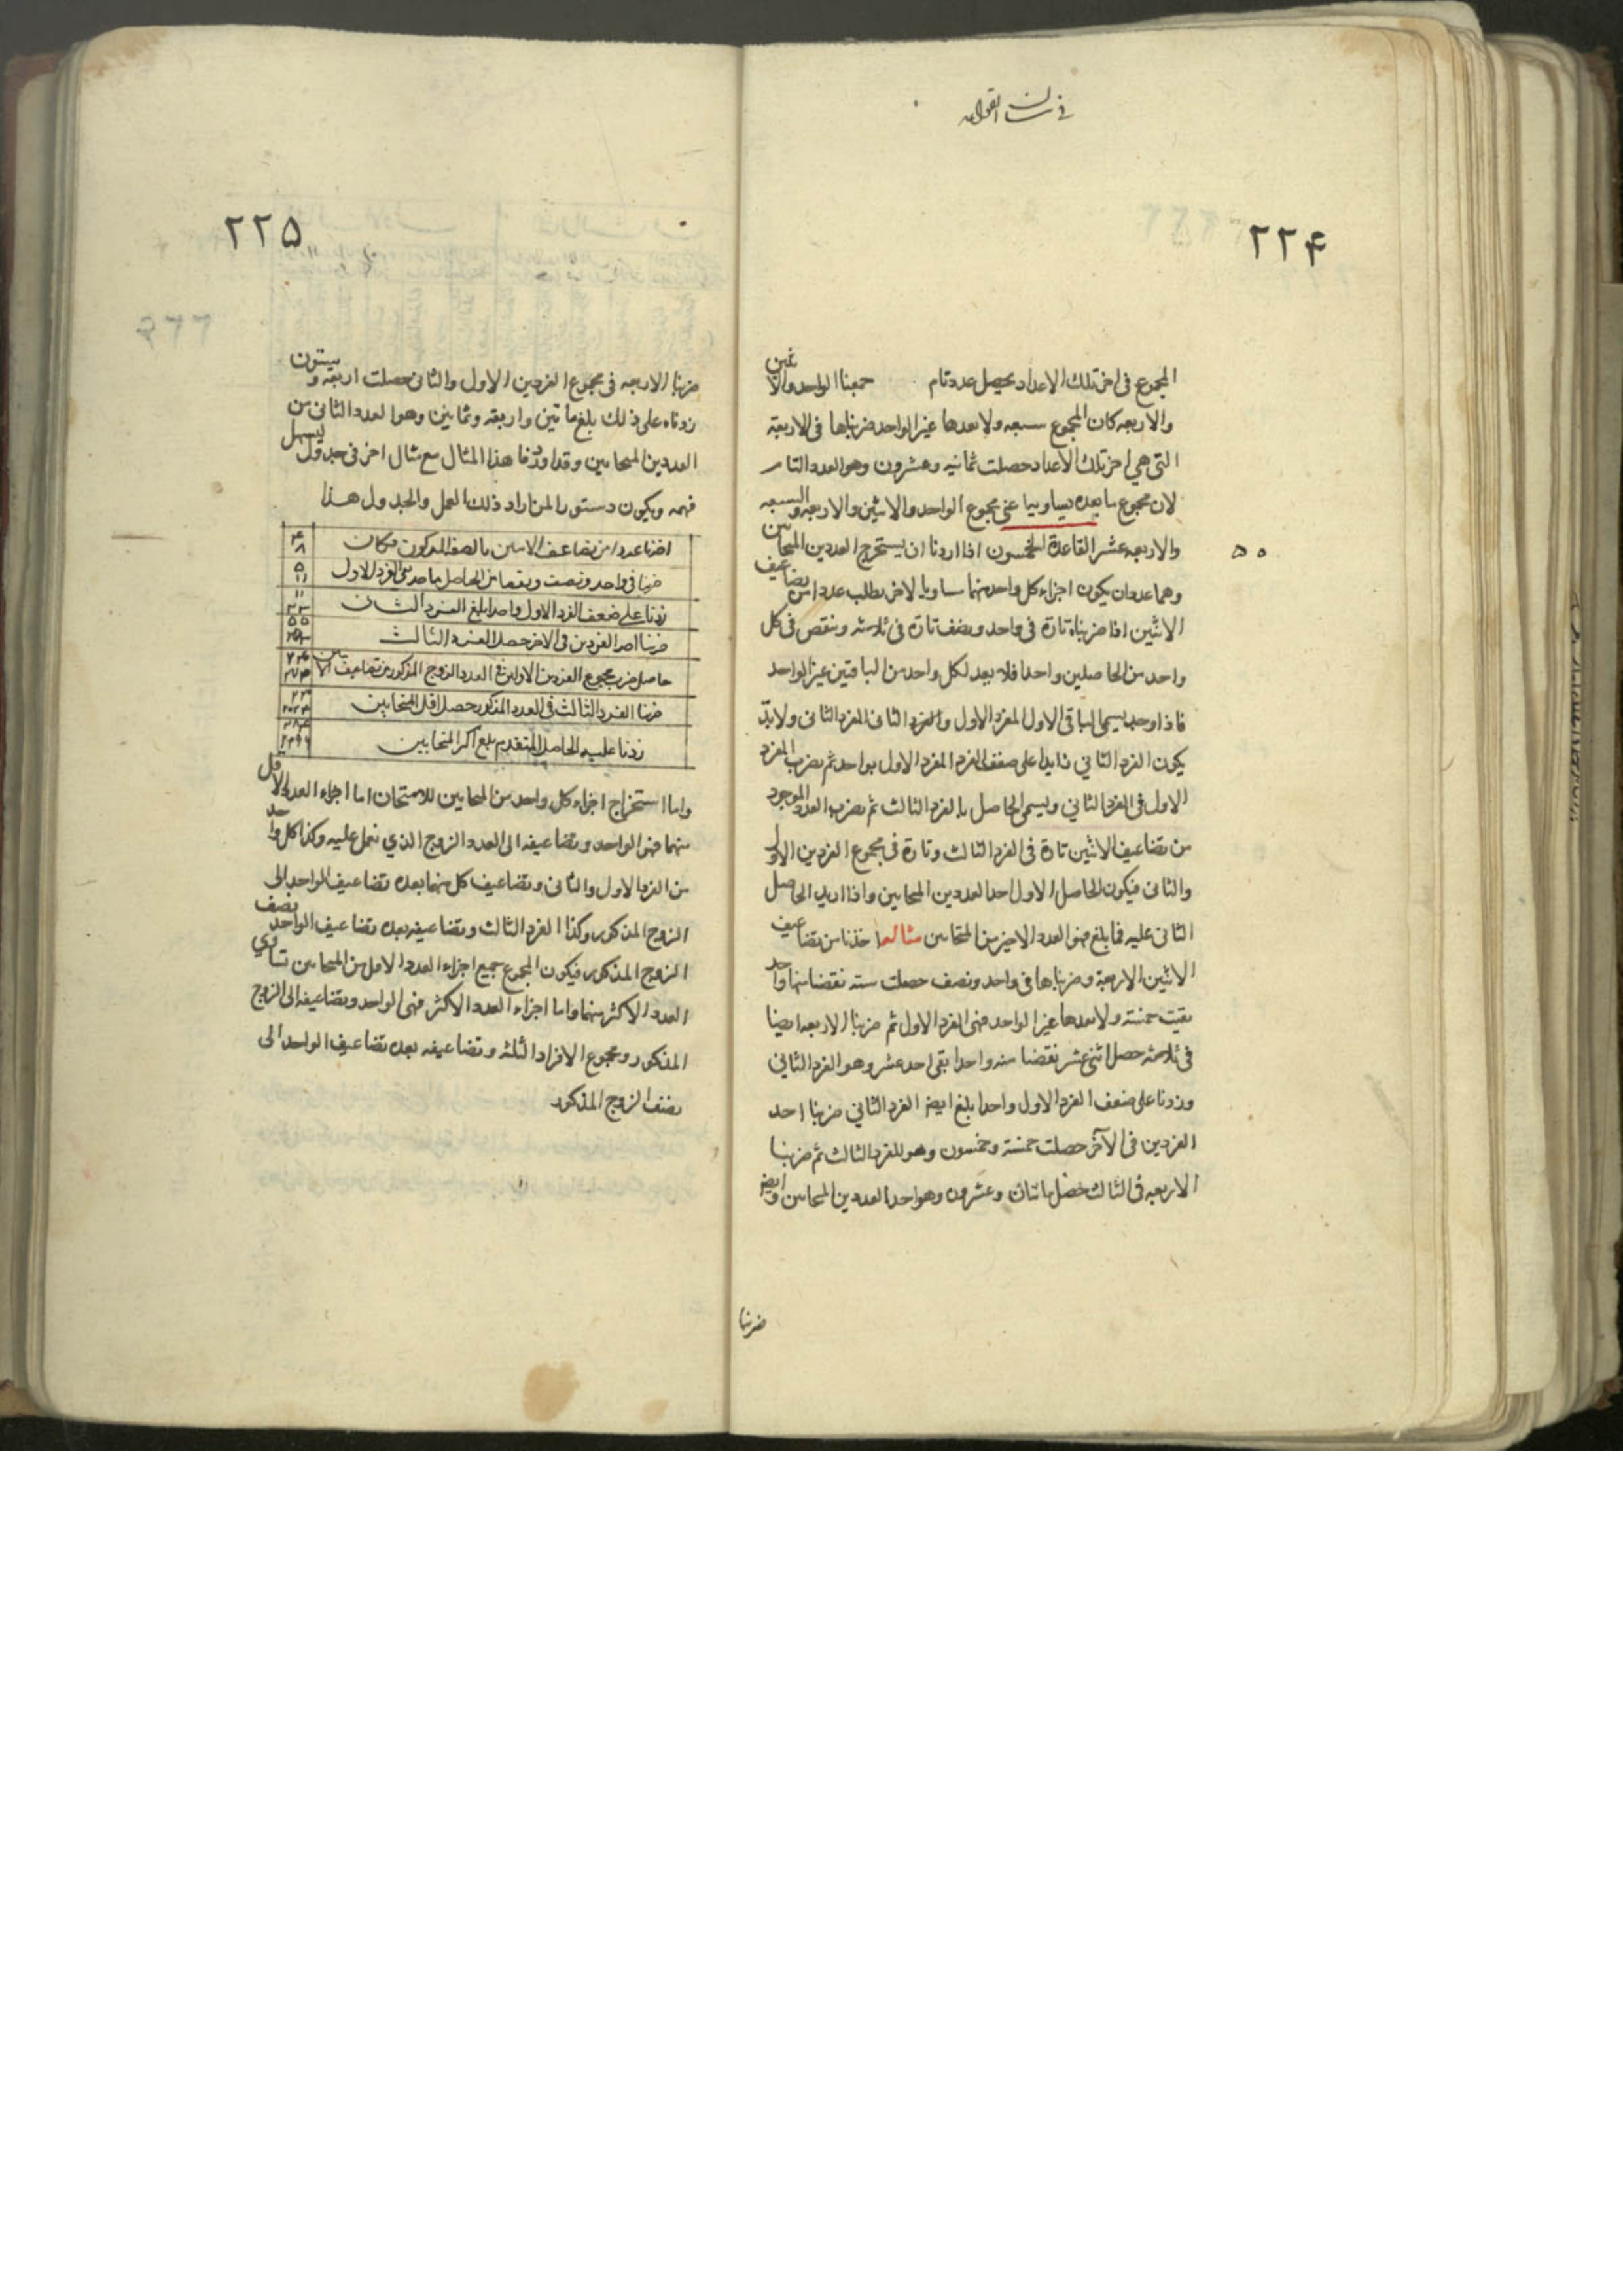 في بيان القواعد
٢٢۴
المجموع فى اخر تلك الاعداد يحصل عدد تام جمعنا الواحد والاثنين
والاربعه كان المجموع سبعه ولا يعدها غير الواحد ضربناها فى الاربعة
التى هي اخر تلك الاعداد حصلت ثمانيه وعشرون وهو العدد التام
لان مجموع ما يعده يساويه اعنى مجموع الواحد والاثنين والاربعه والسبعه
والاربعه عشر القاعدة الخمسون اذا اردنا ان يستخرج العددين المتحابين
٥٠
وهما عددان يكون اجزاء كل واحد منهما مساويا للاخر يطلب عددا من تضاعيف
الاثنين اذا ضربناه تارة فى واحد ونصف تارة فى ثلاثه وينقص فى كل
واحد من الحاصلين واحدا فلا يعد لكل واحد من الباقين غير الواحد
فاذا وجد يسمى الباقى الاول الفرد الاول والفرد الثانى الفرد الثانى ولابدّ
يكون الفرد الثاني زايدا على ضعف الفرد الفرد الاول بواحد ثم يضرب الفرد
الاول فى الفرد الثاني ويسمى الحاصل بالفرد الثالث ثم يضرب العدد الموجود
من تضاعيف الاثنين تارة فى الفرد الثالث وتارة فى مجموع الفردين الاول
والثانى فيكون الحاصل الاول احد العددين المتحابين واذا زيد الحاصل
الثانى عليه فما بلغ فهو العدد الاخير من المتحابين مثاله اخذنا من تضاعيف
الاثنين الاربعة وضربناها فى واحد ونصف حصلت سته نقصنا منها واحد
بقيت خمسة ولا يعدها غير الواحد فهى الفرد الاول ثم ضربنا الاربعه ايضا
فى ثلاثة حصل اثنى عشر نقصنا منه واحدا بقى احد عشر وهو الفرد الثاني
وزدنا على ضعف الفرد الاول واحدا بلغ ايضا الفرد الثاني ضربنا احد
الفردين فى الآخر حصلت خمسة وخمسون وهو الفرد الثالث ثم ضربنا
الاربعه فى الثالث حصل مائتان وعشرون وهو احد العددين المتحابين وايضا
ضربنا
٢٢۵
ضربنا الاربعه فى مجموع الفردين الاول والثانى حصلت اربعه وستون
زدناه على ذلك بلغ مائتين واربعة وثمانين وهو العدد الثانى من
العددين المتحابين وقد اوردنا هذا المثال مع مثال اخر فى جدول ليسهل
فهمه ويكون دستورا لمن اراد ذلك العمل والجدول هذا
اخذنا عددا من تضاعيف الاثنين بالصفة المذكورة فكان ۴ ٨
ضربنا فى واحد ونصف ونقصنا من الحاصل واحد بقي الفرد الاول ۵ ١١
زدنا على ضعف الفرد الاول واحدا بلغ الفرد الثانى ١١ ٢٣
ضربنا احد الفردين فى الاخر حصل الفرد الثالث ۵۵ ٢۵٣
حاصل ضرب مجموع الفردين الاولين فى العدد الزوج المذكور من تضاعيف الاثنين
ضربنا الفرد الثالث فى العدد المذكور حصل اقل المتحابين
زدنا عليه الحاصل المتقدم بلغ اكثر المتحابين
واما استخراج اجزاء كل واحد من المتحابين للامتحان اما اجزاء العدد الاقل
منهما فهو الواحد وتضاعيفه الى العدد الزوج الذي نعمل عليه وكذا كل واحد
من الفرد الاول والثانى وتضاعيف كل منهما بعده تضاعيف الواحد الى
الزوج المذكور وكذا الفرد الثالث وتضاعيفه بعده تضاعيف الواحد نصف
الزوج المذكور فيكون المجموع جميع اجزاء العدد الاقل من المتحابين تساوي
العدد الاكثر منهما واما اجزاء العدد الاكثر فهى الواحد وتضاعيفه الى الزوج
المذكور ومجموع الافراد الثلثه وتضاعيفه بعده تضاعيف الواحد الى
نصف الزوج المذكور